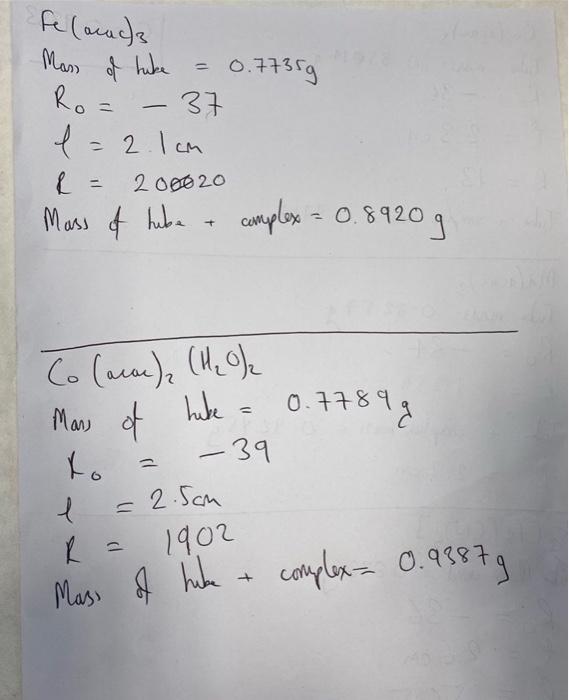 Fe(acac)3
Mass of tube = 0.7735g
R0 = - 37
l = 2.1cm
R = 2020
Mass of tube + complex = 0.8920 g
Co(acac)2 (H2O)2
Mass of tube = 0.7789g
R0 = -39
l = 2.5cm
R = 1902
Mass of tube + complex = 0.9387g